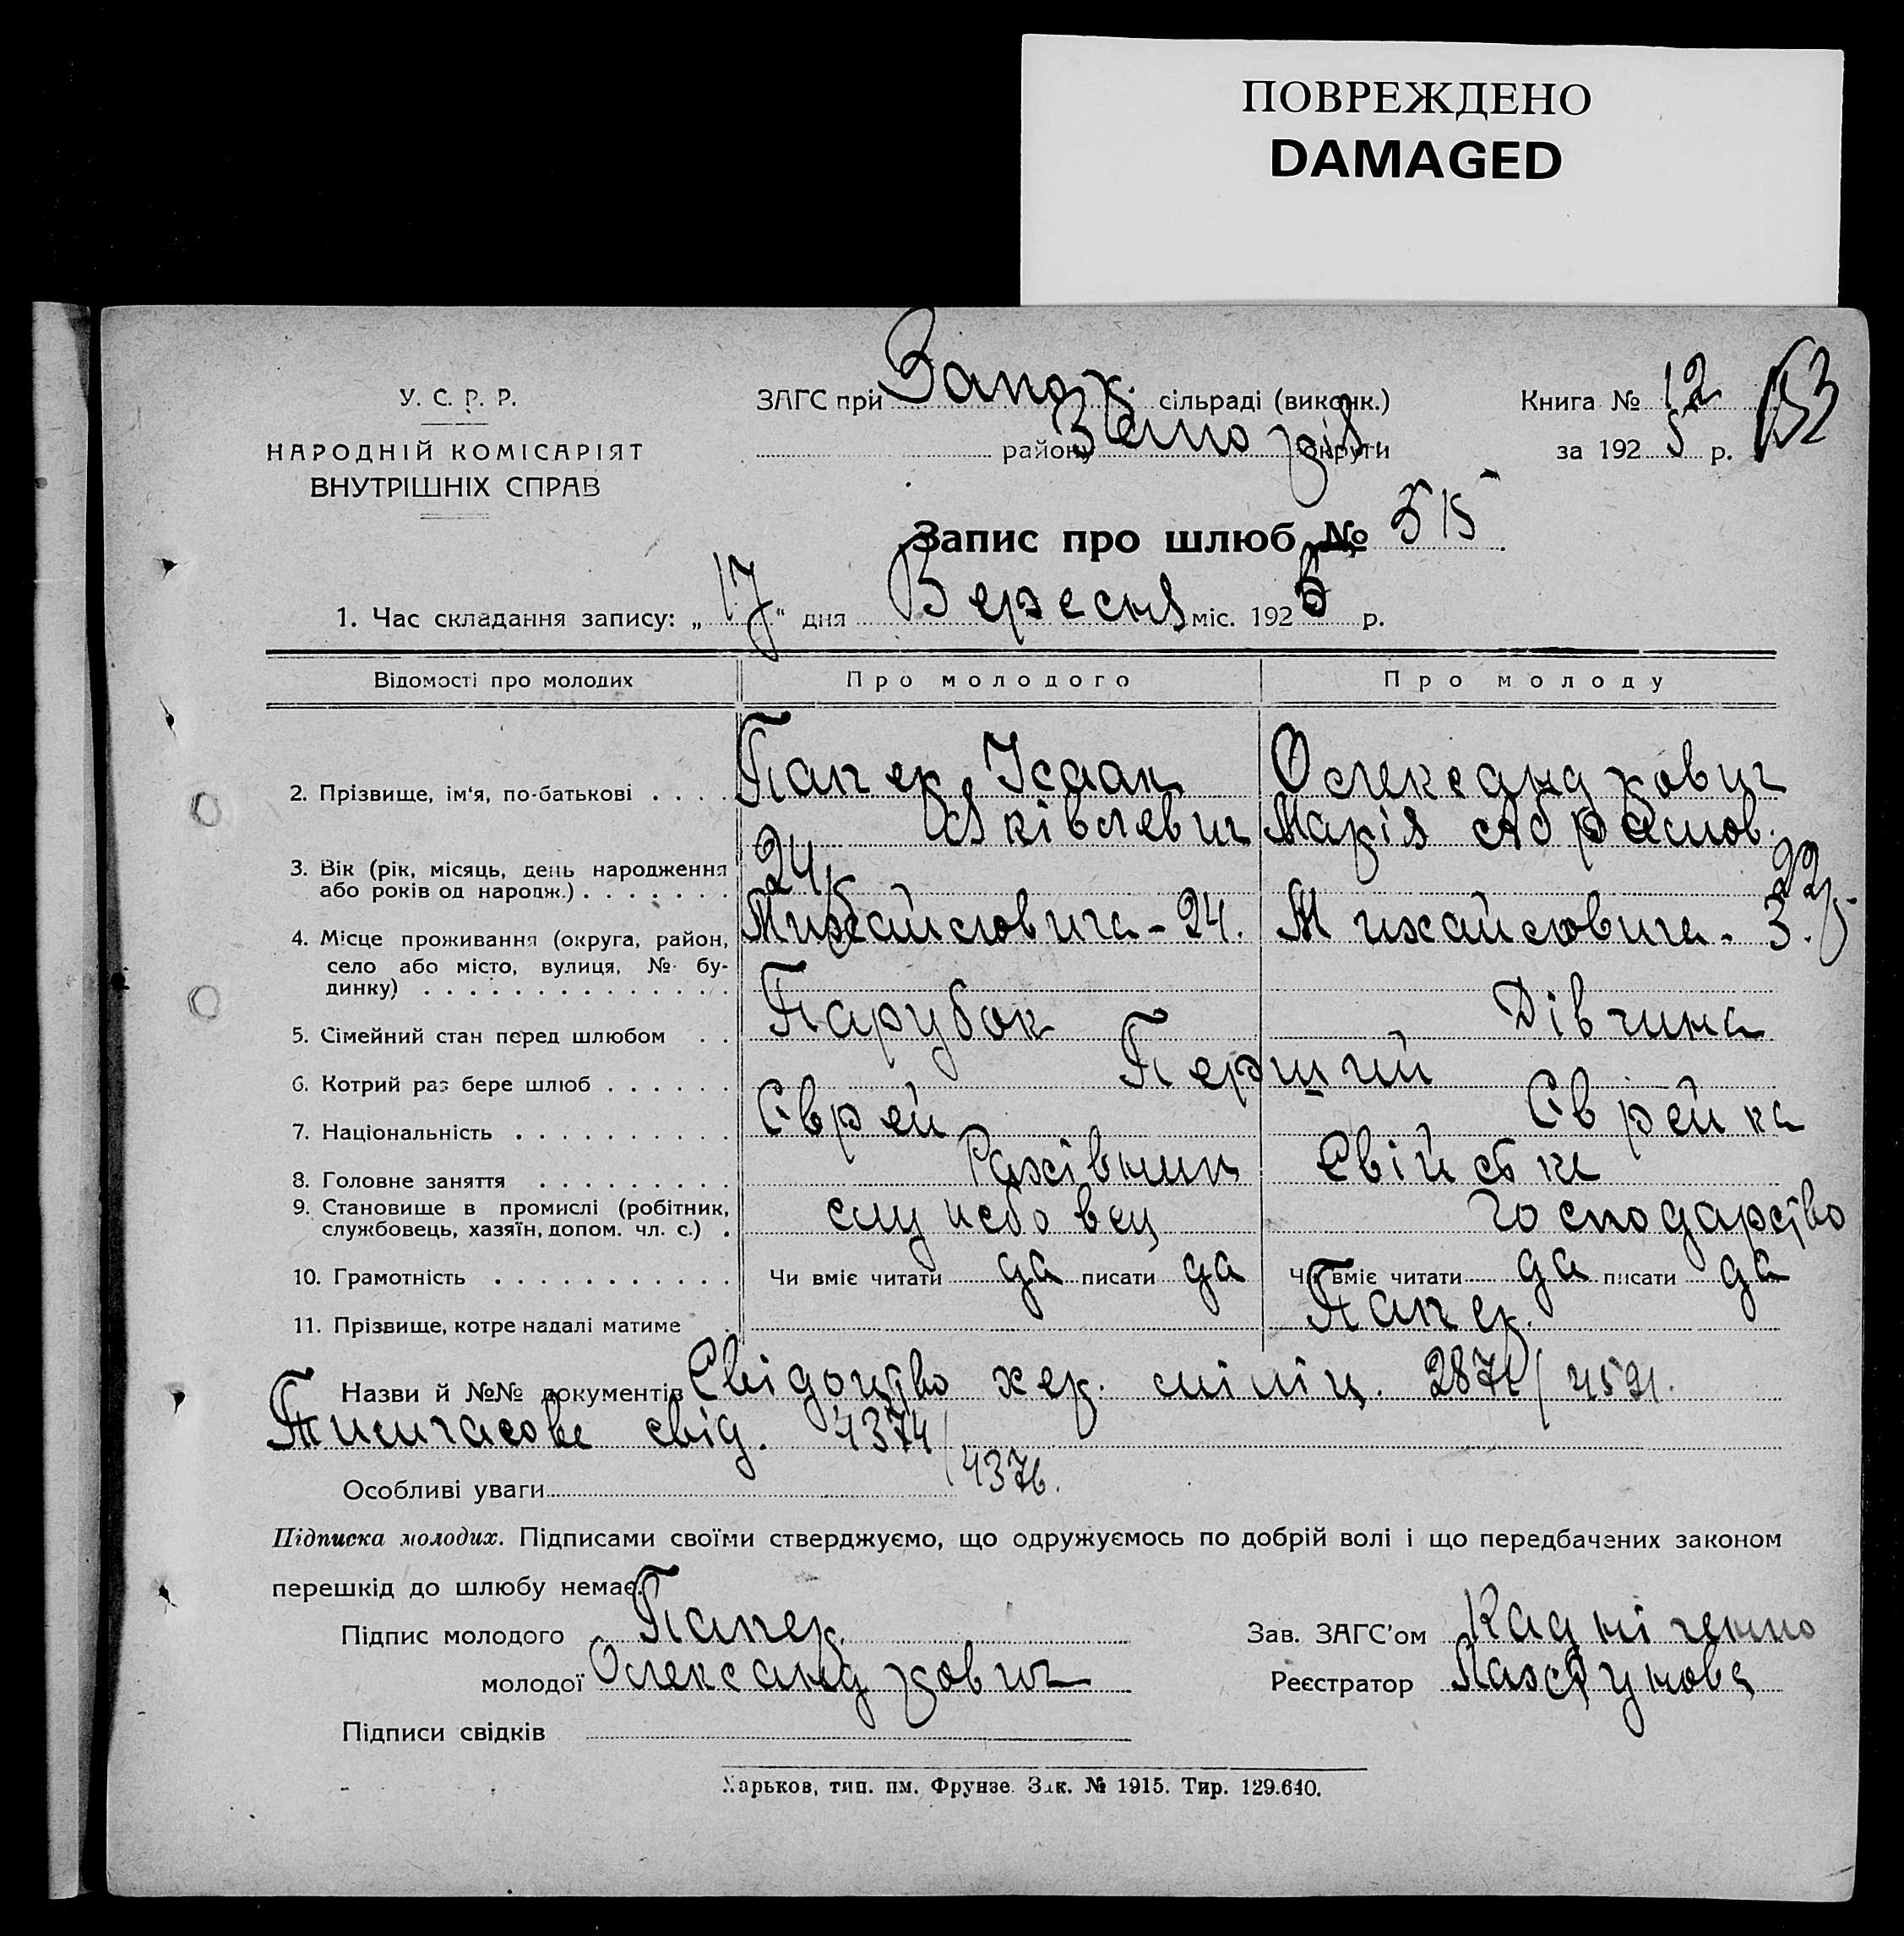 ПОВРЕЖДЕНО
DAMAGED
У. С. Р. Р.
НАРОДНІЙ КОМІСАРІЯТ
ВНУТРІШНІХ СПРАВ
ЗАГС при Запор. сільраді (виконк.)
району округи
Книга № 12
за 1925 р.
Запис про шлюб № 515
1. Час складання запису: „17“ дня Вересня міс. 1925 р.
Відомості про молодих Про молодого Про молоду
2. Прізвище, ім‘я, по-батькові . . . . Папер Ісаак Олександрович
Яківлевич Марія Абрамов.
3. Вік (рік, місяць, день народження 24 22
або років од народж.) . . . . . . .
4. Місце проживання (округа, район, Михайловича - 24. Михайловича - 3.
село або місто, вулиця, № бу-
динку) . . . . . . . . . . . . . .
5. Сімейний стан перед шлюбом . . Парубок Дівчина
6. Котрий раз бере шлюб . . . . . . Перший
7. Національність . . . . . . . . . . Єврей Єврейка
8. Головне заняття . . . . . . . . . Рахівник Свійске
9. Становище в промислі (робітник, службовець господарство
службовець, хазяїн, допом. чл. с.) .
10. Грамотність . . . . . . . . . . . Чи вміє читати да писати да Чи вміє читати да писати да
11. Прізвище, котре надалі матиме Папер.
Назви й №№ документів Свідоцтво хер. міліц. 2871/4591.
Тимчасове свід. 4374/4376.
Особливі уваги
Підписка молодих. Підписами своїми стверджуємо, що одружуємось по добрій волі і що передбачених законом
перешкід до шлюбу немає.
Підпис молодого Папер Зав. ЗАГС’ом
молодої Олександрович Реєстратор
Підписи свідків
Харьков, тип. им. Фрунзе. Зак. № 1915. Тир. 129.640.